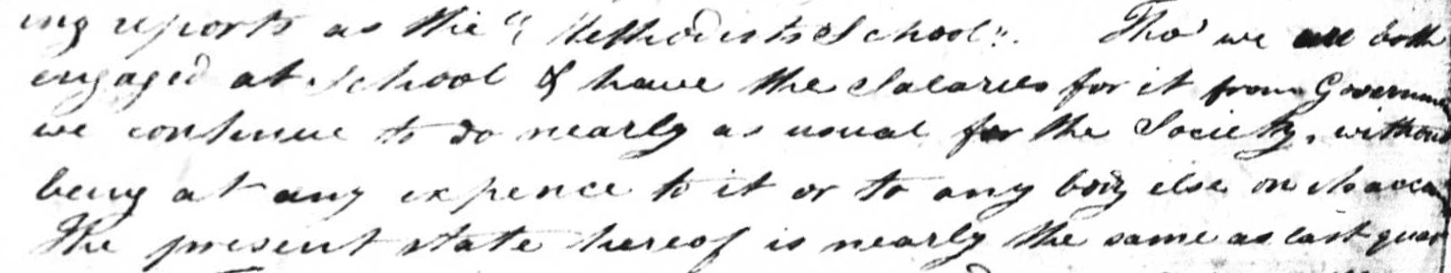 ing reports as the "Methodists School". Tho' we are both
engaged at School & have the Salaries for it from Governm
we continue to do nearly as usual for the Society, without
being at any expence to it or to any body else on its acco
The present state hereof is nearly the same as last quar